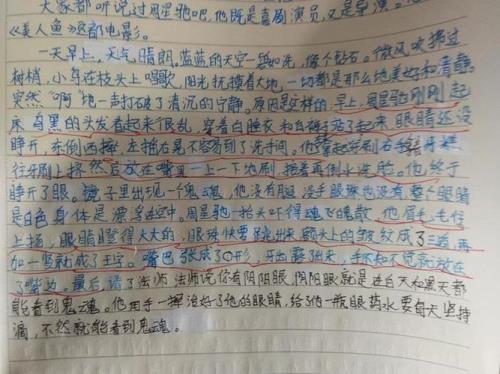 大家都听说过周星驰吧，他既是喜剧演员，又是导演。
《美人鱼》这部电影。
一天早上，天气晴朗。蓝蓝的天空一碧如洗，像个钻石。微风吹拂过
树梢，小鸟在枝头上唱歌，阳光抚摸着大地，一切都是那么地美好和清静。
突然“啊”地一声打破了清沉的宁静。原因是这样的，早上，周星驰刚刚起
床乌黑的头发看起来很乱，穿着白睡衣和白裤，站了起来眼睛还没
睁开，东倒西撞，左摇右晃不容易到了洗手间。他拿起牙刷右手
往牙刷上挤然后放在嘴里一上一下地刷，接着再倒水洗脸。他终于
睁开了眼。镜子里出现一个鬼魂，他没有腿没手眼珠也没有整个眼睛
是白色身体是漂浮空中。周星驰一抬头吓得魂飞魄散，他眉毛
上扬，眼睛瞪得大大的，眼珠快要跳出来额头上的皱纹成了三道，再
加一竖就成了王字。嘴巴张成了O形，牙齿露出来，手不知不觉就放在
了嘴边。最后，请了法师法师说你有阴阳眼，阴阳眼就是在白天和黑天都
能看到鬼魂。他用手一挥治好了他的眼睛，给了他一瓶眼药水要每天坚持
滴，不然就能看到鬼魂。